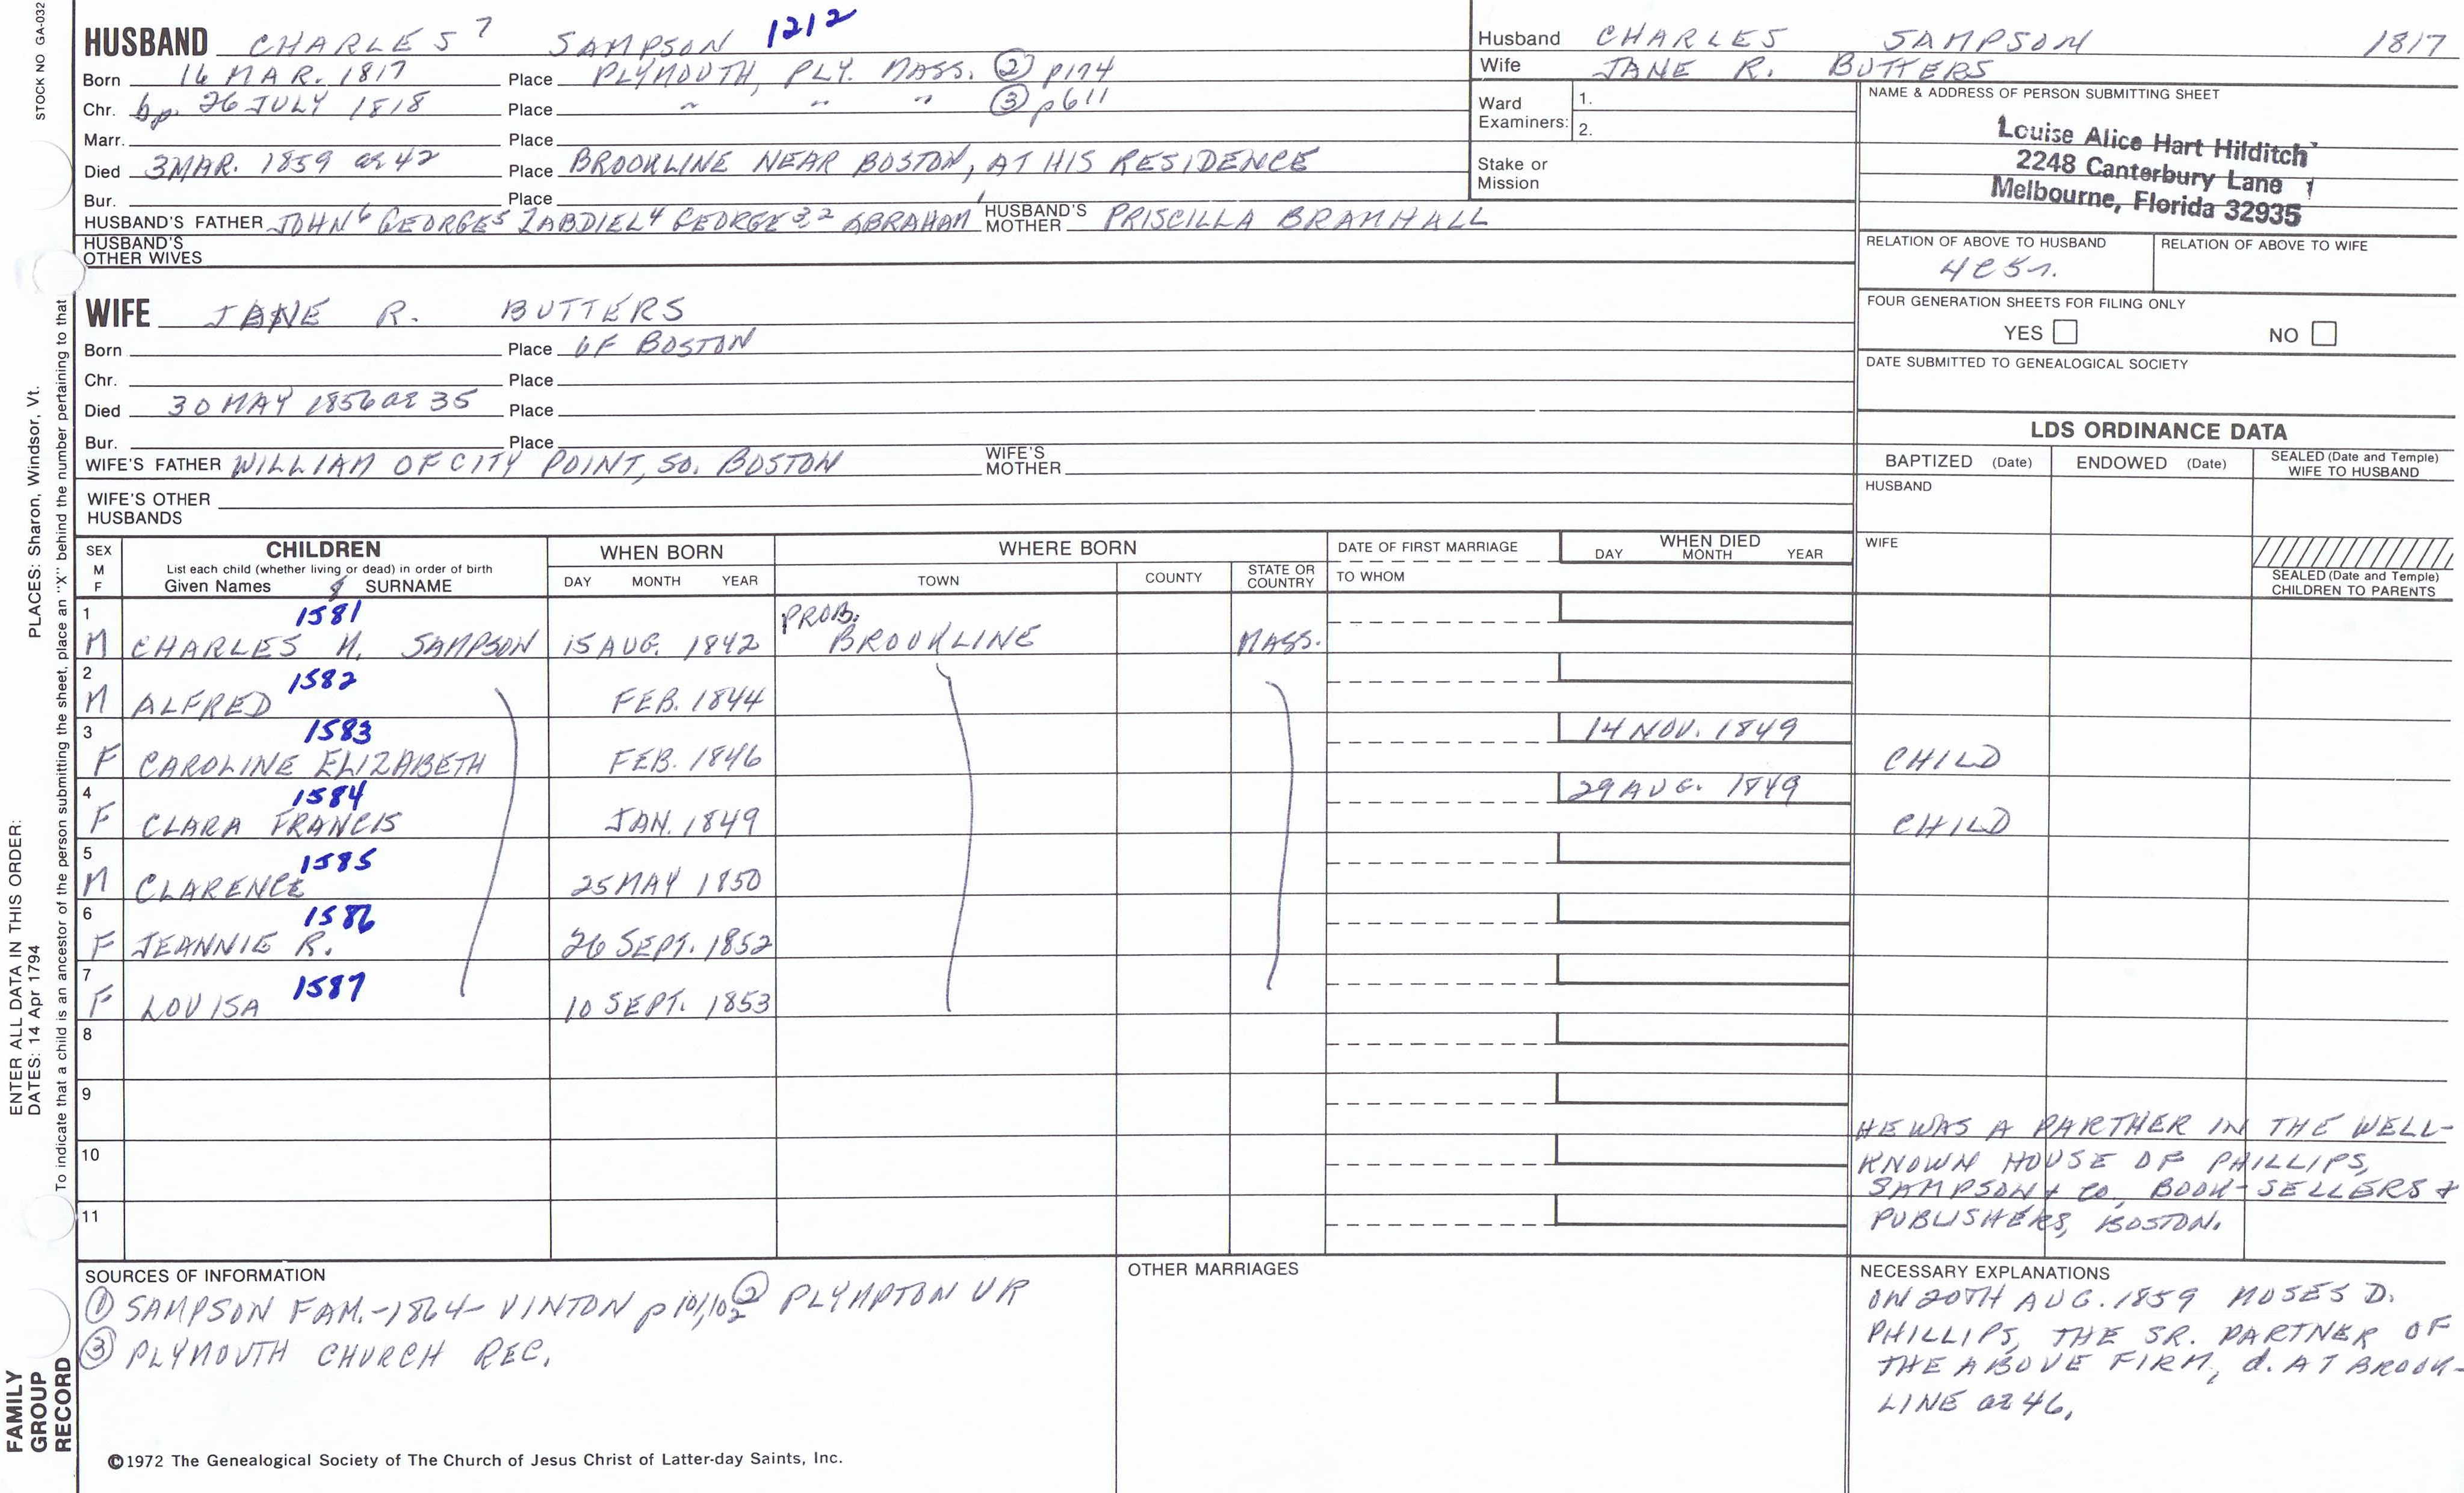 STOCK NO GA-032
HUSBAND CHARLES 7 SAMPSON 1212
Born 16 MAR. 1817 Place PLYMOUTH, PLY. MASS. ② p174
Chr. bp. 26 JULY 1818 Place " " " ③ p611
Marr. Place
Died 3 MAR. 1859 ae 42 Place BROOKLINE NEAR BOSTON, AT HIS RESIDENCE
Bur. Place
HUSBAND'S FATHER JOHN 6 GEORGE 5 ZABDIEL 4 GEORGE 3 2 ABRAHAM 1 HUSBAND'S MOTHER PRISCILLA BRAMHALL
HUSBAND'S OTHER WIVES
WIFE JANE R. BUTTERS
Born Place OF BOSTON
Chr. Place
Died 30 MAY 1856 ae 35 Place
Bur. Place
WIFE'S FATHER WILLIAM OF CITY POINT, SO. BOSTON WIFE'S MOTHER
WIFE'S OTHER HUSBANDS
Husband CHARLES SAMPSON 1817
Wife JANE R. BUTTERS
Ward Examiners: 1.
2.
Stake or Mission
NAME & ADDRESS OF PERSON SUBMITTING SHEET
Louise Alice Hart Hilditch
2248 Canterbury Lane
Melbourne, Florida 32935
RELATION OF ABOVE TO HUSBAND RELATION OF ABOVE TO WIFE
4C5r.
FOUR GENERATION SHEETS FOR FILING ONLY
YES NO
DATE SUBMITTED TO GENEALOGICAL SOCIETY
LDS ORDINANCE DATA
BAPTIZED (Date) ENDOWED (Date) SEALED (Date and Temple) WIFE TO HUSBAND
HUSBAND
WIFE
SEALED (Date and Temple)
CHILDREN TO PARENTS
SEX M F
CHILDREN
List each child (whether living or dead) in order of birth
Given Names SURNAME
WHEN BORN
DAY MONTH YEAR
WHERE BORN
TOWN COUNTY STATE OR COUNTRY
DATE OF FIRST MARRIAGE
TO WHOM
WHEN DIED
DAY MONTH YEAR
1 1581 PROB.
M CHARLES H. SAMPSON 15 AUG. 1842 BROOKLINE MASS.
2 1582
M ALFRED FEB. 1844
3 1583 14 NOV. 1849
F CAROLINE ELIZABETH FEB. 1846 CHILD
4 1584 29 AUG. 1849
F CLARA FRANCIS JAN. 1849 CHILD
5 1585
M CLARENCE 25 MAY 1850
6 1586
F JEANNIE R. 26 SEPT. 1852
7 1587
F LOUISA 10 SEPT. 1853
8
9
10
11
HE WAS A PARTNER IN THE WELL-
KNOWN HOUSE OF PHILLIPS,
SAMPSON & CO. BOOK-SELLERS &
PUBLISHERS, BOSTON.
SOURCES OF INFORMATION
① SAMPSON FAM.-1864- VINTON p 101,102 ② PLYMPTON VR
③ PLYMOUTH CHURCH REC.
OTHER MARRIAGES
NECESSARY EXPLANATIONS
ON 20TH AUG. 1859 MOSES D.
PHILLIPS, THE SR. PARTNER OF
THE ABOVE FIRM, d. AT BROOK-
LINE ae 46.
©1972 The Genealogical Society of The Church of Jesus Christ of Latter-day Saints, Inc.
FAMILY GROUP RECORD
ENTER ALL DATA IN THIS ORDER:
DATES: 14 Apr 1794
PLACES: Sharon, Windsor, Vt.
To indicate that a child is an ancestor of the person submitting the sheet, place an "X" behind the number pertaining to that